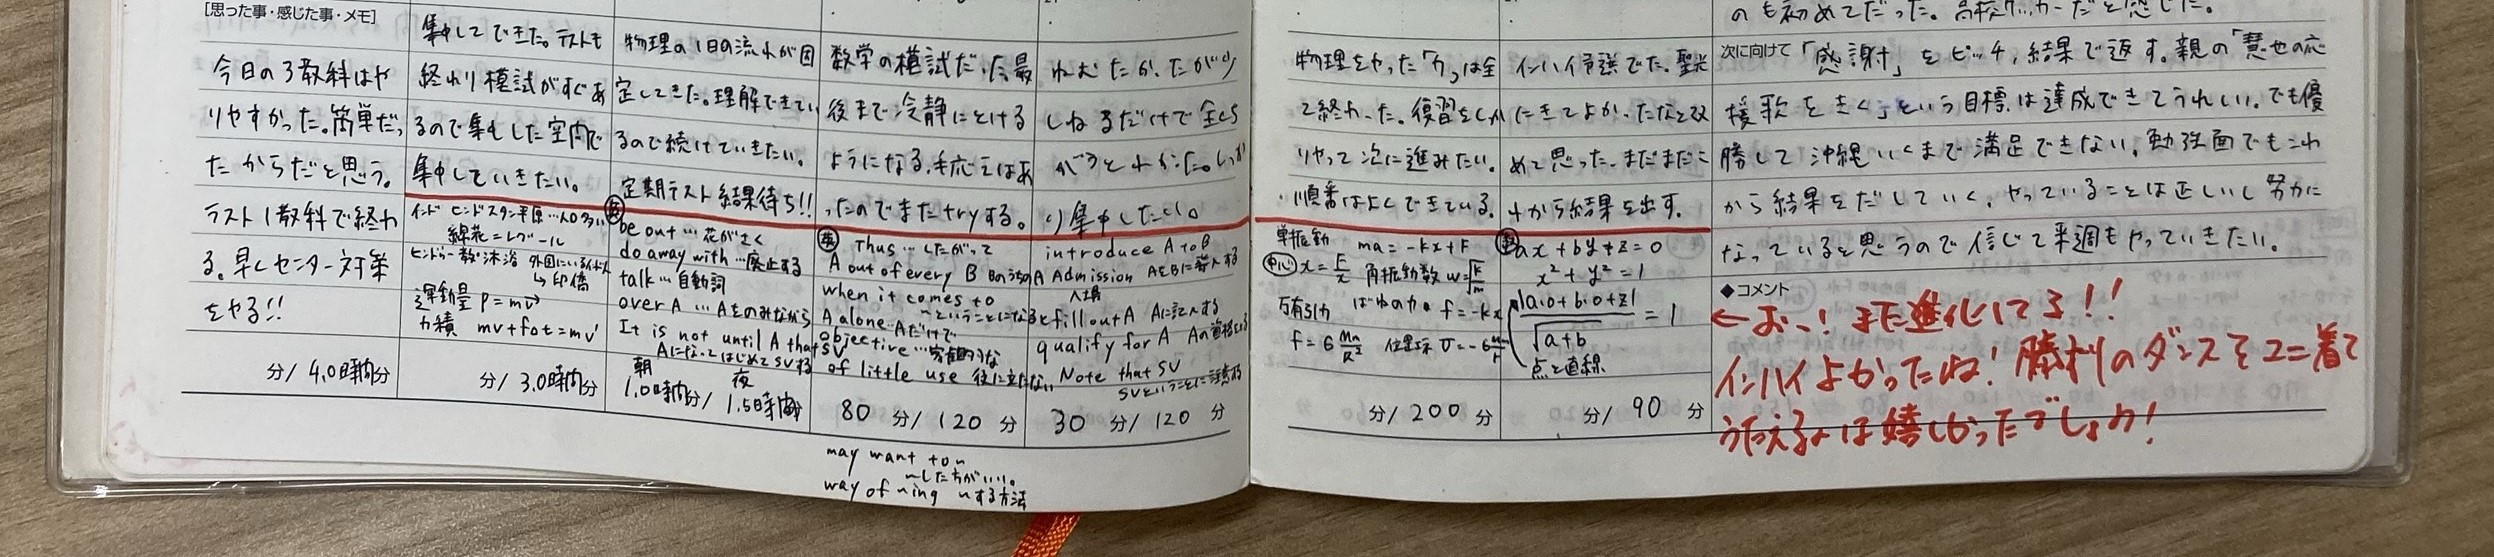 [思った事・感じた事・メモ]
今日の3教科はや
りやすかった。簡単だっ
たからだと思う。
テスト1教科で終わ
る。早くセンター対策
をやる!!
分/ 4.0時間分
集中してできた。テストも
終わり模試がすぐあ
るので集中した空間で
集中していきたい。
インド ヒンドスタン平原…人口多い
綿花=レグール
ヒンドゥー教:沐浴 外国にいるインド人
↳ 印僑
運動量 P=mv
力積 mv+f⊿t=mv'
分/ 3.0時間分
物理の1日の流れが固
定してきた。理解できてい
るので続けていきたい。
定期テスト結果待ち!!
英
be out … 花がさく
do away with …廃止する
talk … 自動詞
over A … Aをのみながら
It is not until A that SV
AになってはじめてSVする
朝 夜
1.0時間分/ 1.5時間分
数学の模試だった。最
後まで冷静にとける
ようになる。手応えはあ
ったのでまたtryする。
英 Thus …したがって
A out of every B BのうちのA
when it comes to
〜ということになると
A alone Aだけで
objective …客観的な
of little use 役に立たない
80 分/ 120 分
may want to 〜
〜した方がいい。
way of 〜ing 〜する方法
ねむたかったが少
しねるだけで全くち
がうとわかった。しっか
り集中したい。
introduce A to B
Admission AをBに導入する
入場
fill out A Aに記入する
qualify for A Aの資格を得る
Note that SV
SVということに注意する
30 分/ 120 分
物理をやった「力」は全
て終わった。復習をしっか
りやって次に進みたい。
・順番はよくできている。
単振動 ma=-kx+F
中心 x=F/x 角振動数 w=√k/m
万有引力 ばねの力。 f=-kx
f=G Mm/R² 位置エネ U=-G
分/ 200 分
インハイ予選でた。聖光
にきてよかったなと改
めて思った。まだまだこ
っから結果を出す。
数 ax+by+z=0
x²+y²=1
|a・0+b・0+z|/√a+b = 1
点と直線
分/ 90 分
のも初めてだった。高校サッカーだと感じた。
次に向けて 「感謝」をピッチ,結果で返す。親の「慧也の応
援歌をきく」という目標は達成できてうれしい。でも優
勝して沖縄いくまで満足できない。勉強面でもこれ
から結果をだしていく。やっていることは正しいし努力に
なっていると思うので信じて来週もやっていきたい。
◆コメント
←おー!また進化してる!!
インハイよかったね!勝利のダンスをユニ着て
うたえるのは嬉しかったでしょう!